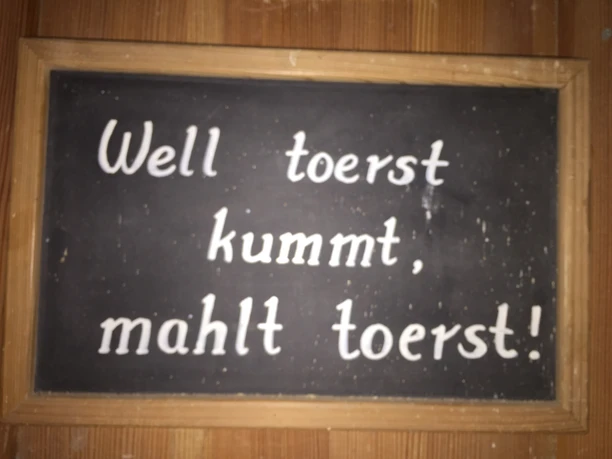 Well toerst
kummt,
mahlt toerst!